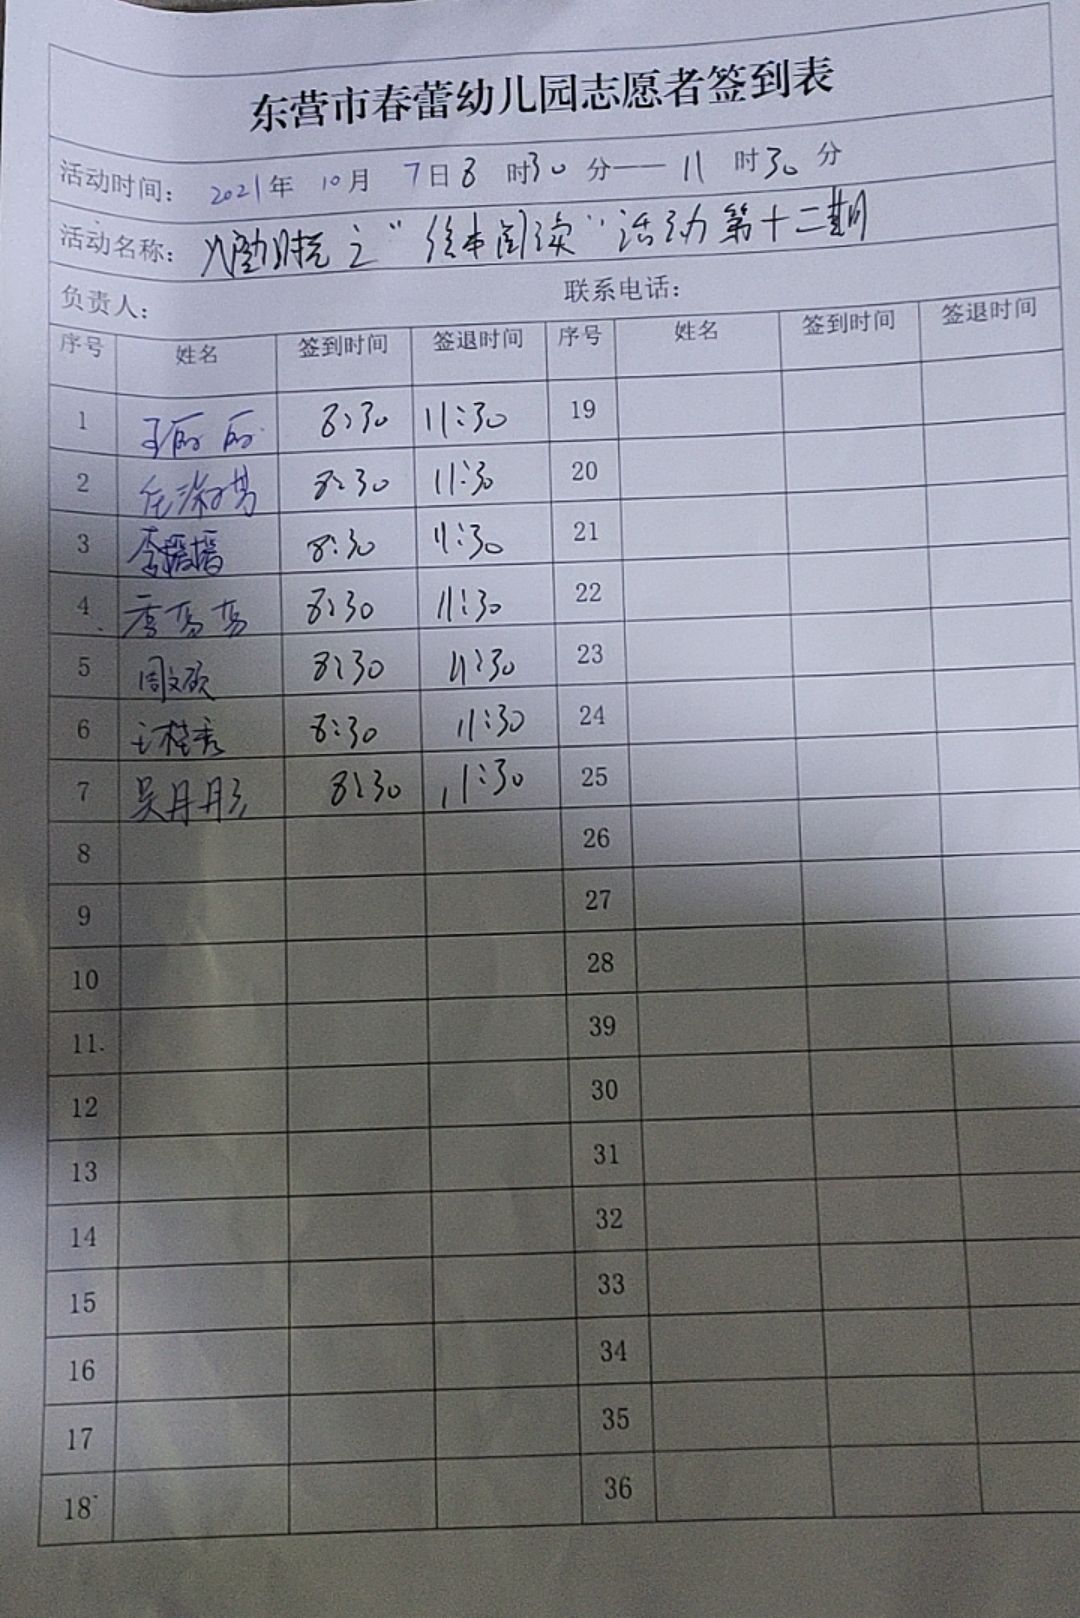 东营市春蕾幼儿园志愿者签到表
活动时间： 2021年 10月 7日 8 时30 分—— 11 时30 分
活动名称： 之“绘本阅读”活动第十二期
负责人： 联系电话：
序号 姓名 签到时间 签退时间 序号 姓名 签到时间 签退时间
1 王丽丽 8:30 11:30 19
2 任淑 8:30 11:30 20
3 李媛媛 8:30 11:30 21
4 8:30 11:30 22
5 周文欣 8:30 11:30 23
6 王桂秀 8:30 11:30 24
7 吴丹丹 8:30 11:30 25
8 26
9 27
10 28
11 39
12 30
13 31
14 32
15 33
16 34
17 35
18 36